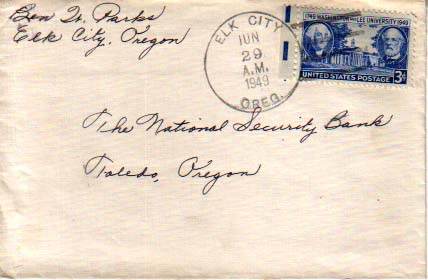 Ben W. Parks
Elk City, Oregon
ELK CITY
JUN
29
A.M.
1949
OREG.
1749 WASHINGTON AND LEE UNIVERSITY 1949
UNITED STATES POSTAGE 3¢
The National Security Bank
Toledo, Oregon